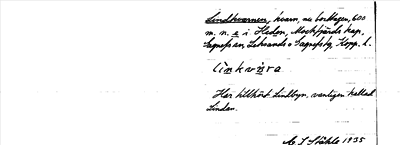 Lindkvarnen, kvarn, nu borttagen, 600
m. n. o i Heden, Mockfjärds kap.
Gagnefs sn, Leksands o Gagnefs tg, Kopp. l.
linkvṇra
Har tillhört Lindbyn, vanligen kallad
Linden.
1935